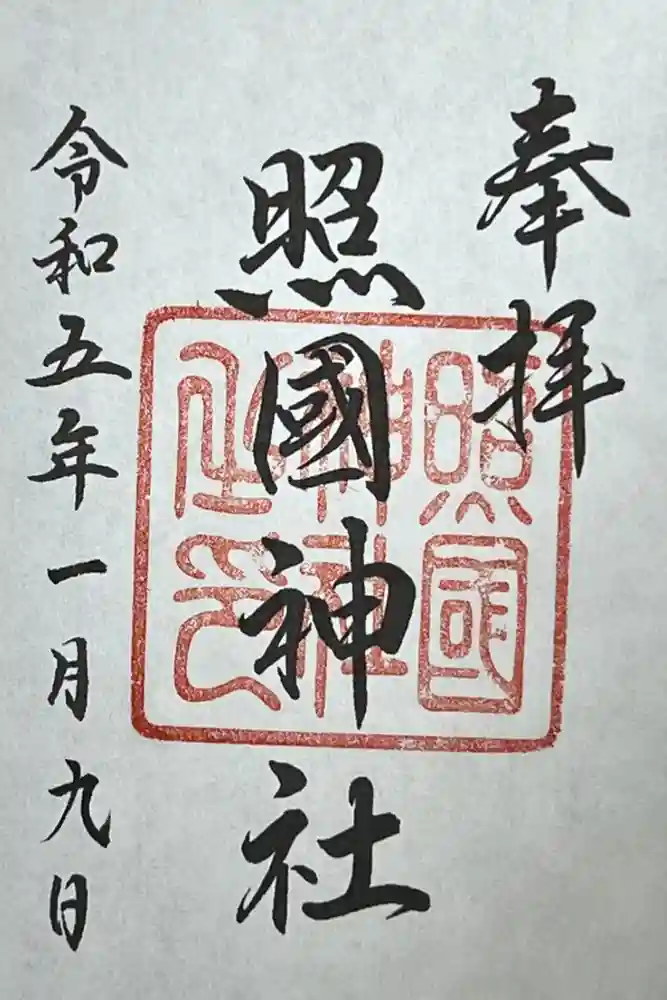 奉拝
照國神社
令和五年一月九日
照國
神社
之印